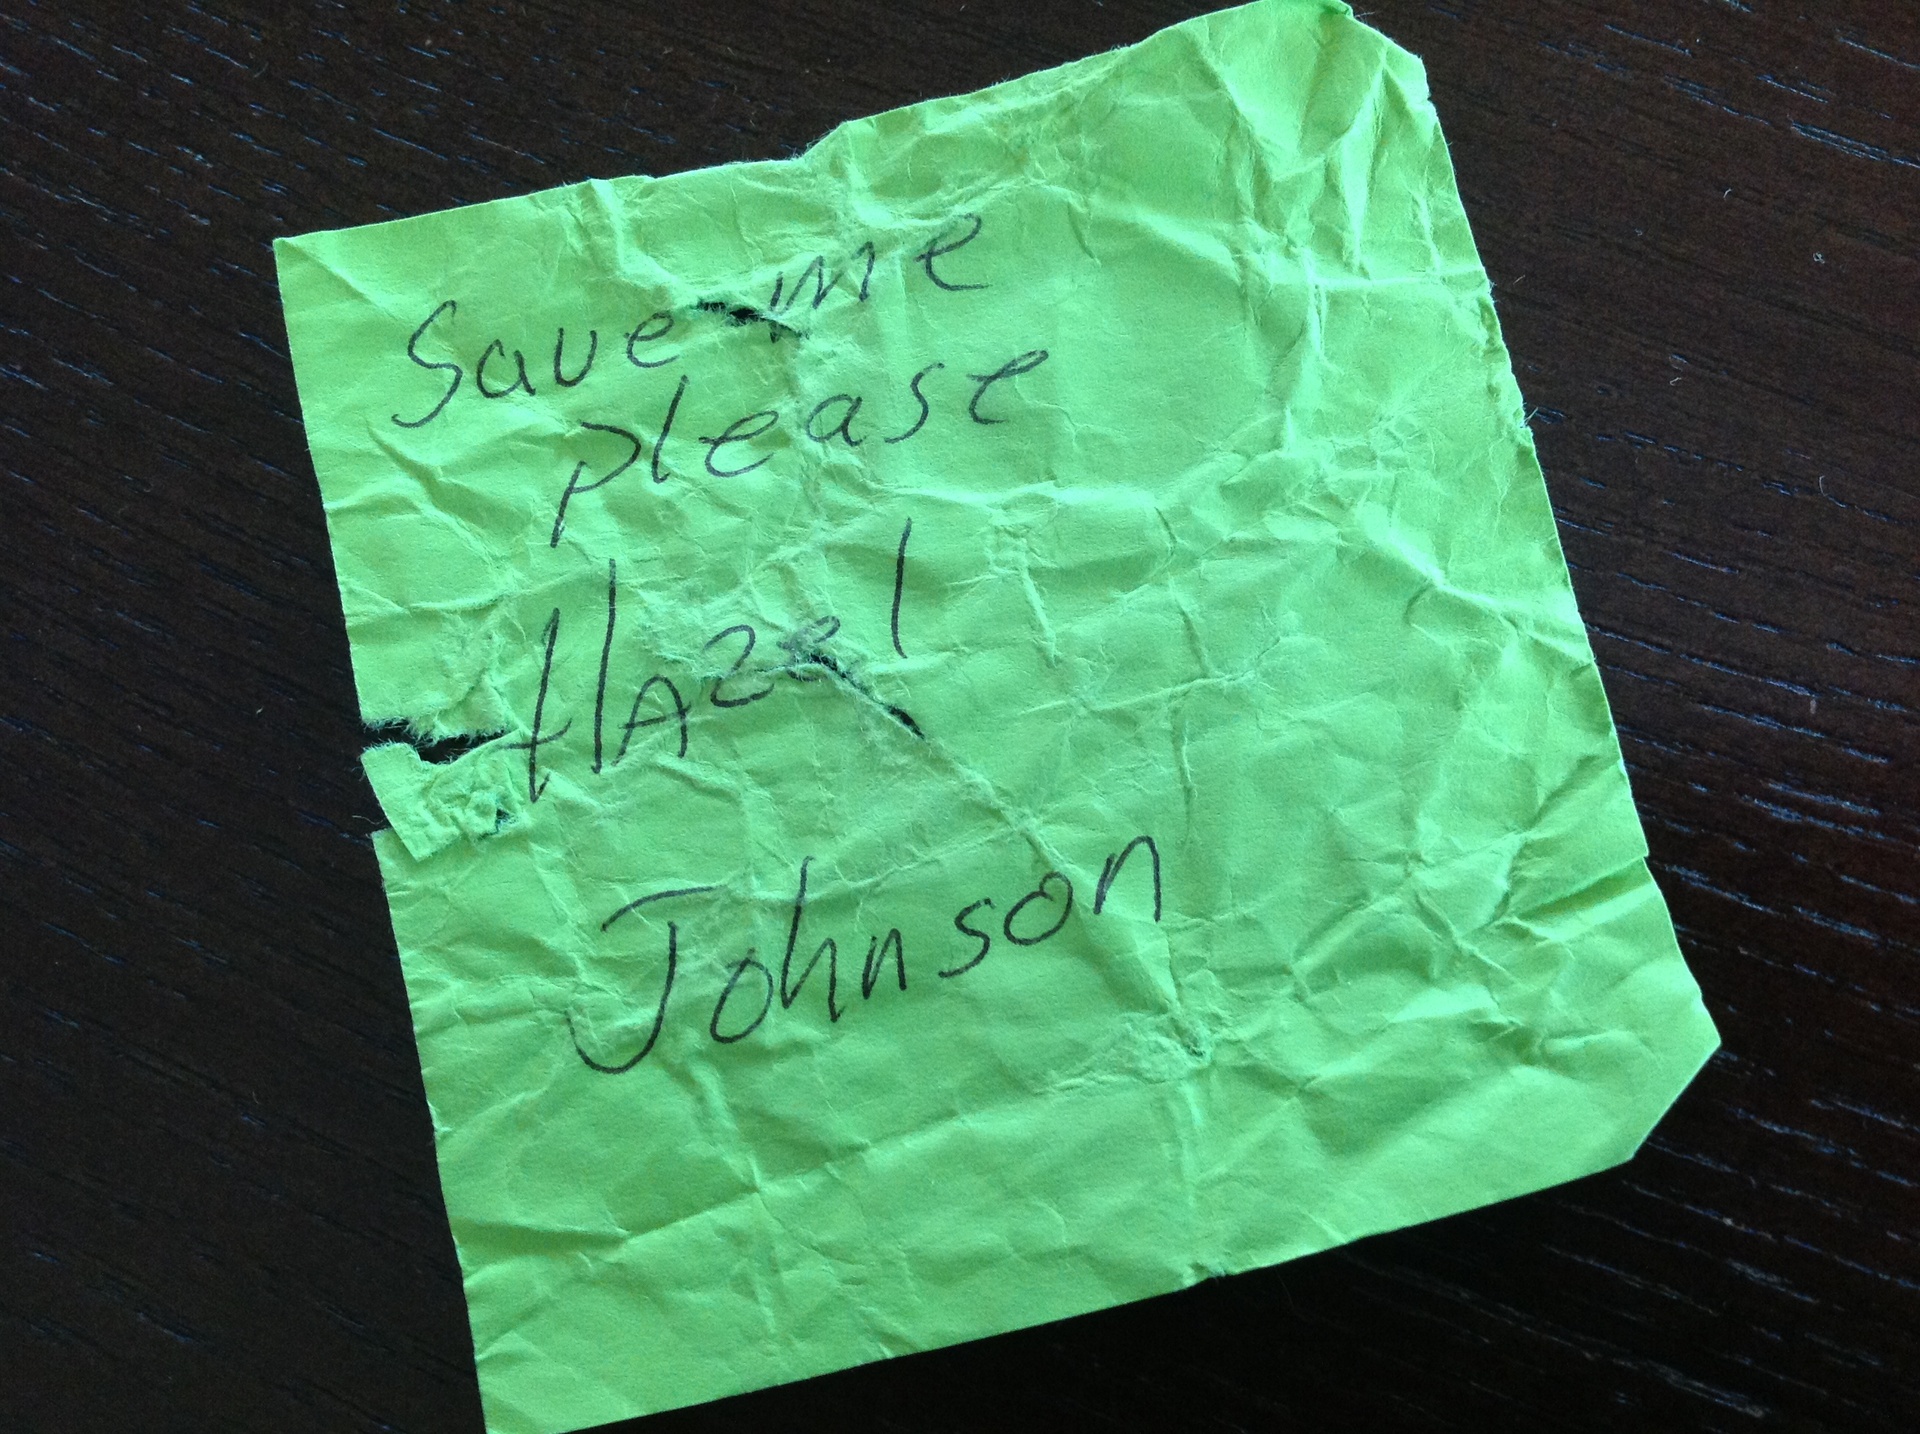 Save me
please
HAzel
Johnson